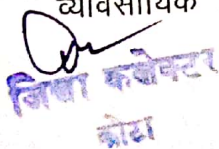 व्यावसायिक
जिला कलेक्टर
कोटा